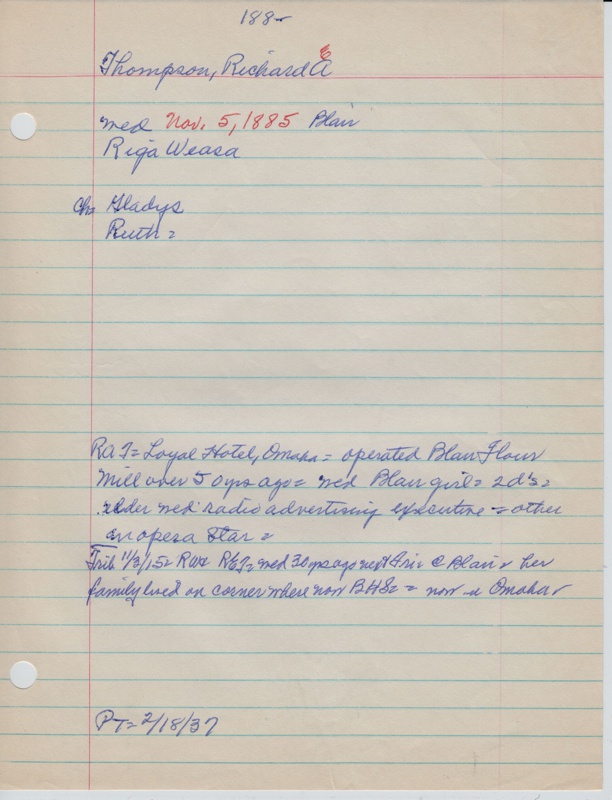 188-
Thompson, Richard A
E
med Nov. 5, 1885 Blair
Riga Weasa
Ch= Gladys
Ruth=
RAT= Loyal Hotel, Omaha= operated Blair Flour
Mill over 50 yrs ago= med Blair girl= 2 d's=
elder med radio advertising executive= other
an opera star=
Trib 11/3/15= R.E.T.= med 30 yrs ago next Fri @ Blair= her
family lived on corner where now BHS= = now Omaha
PT= 2/18/37